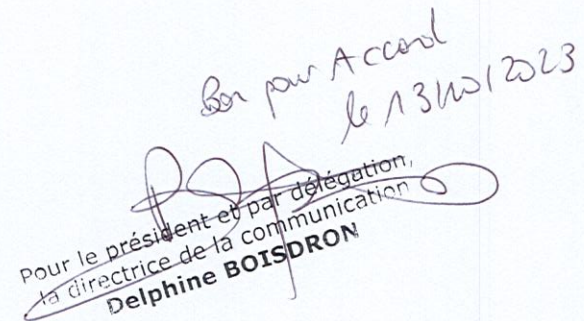 Bon pour Accord
le 13/10/2023
Pour le président et par délégation,
la directrice de la communication
Delphine BOISDRON